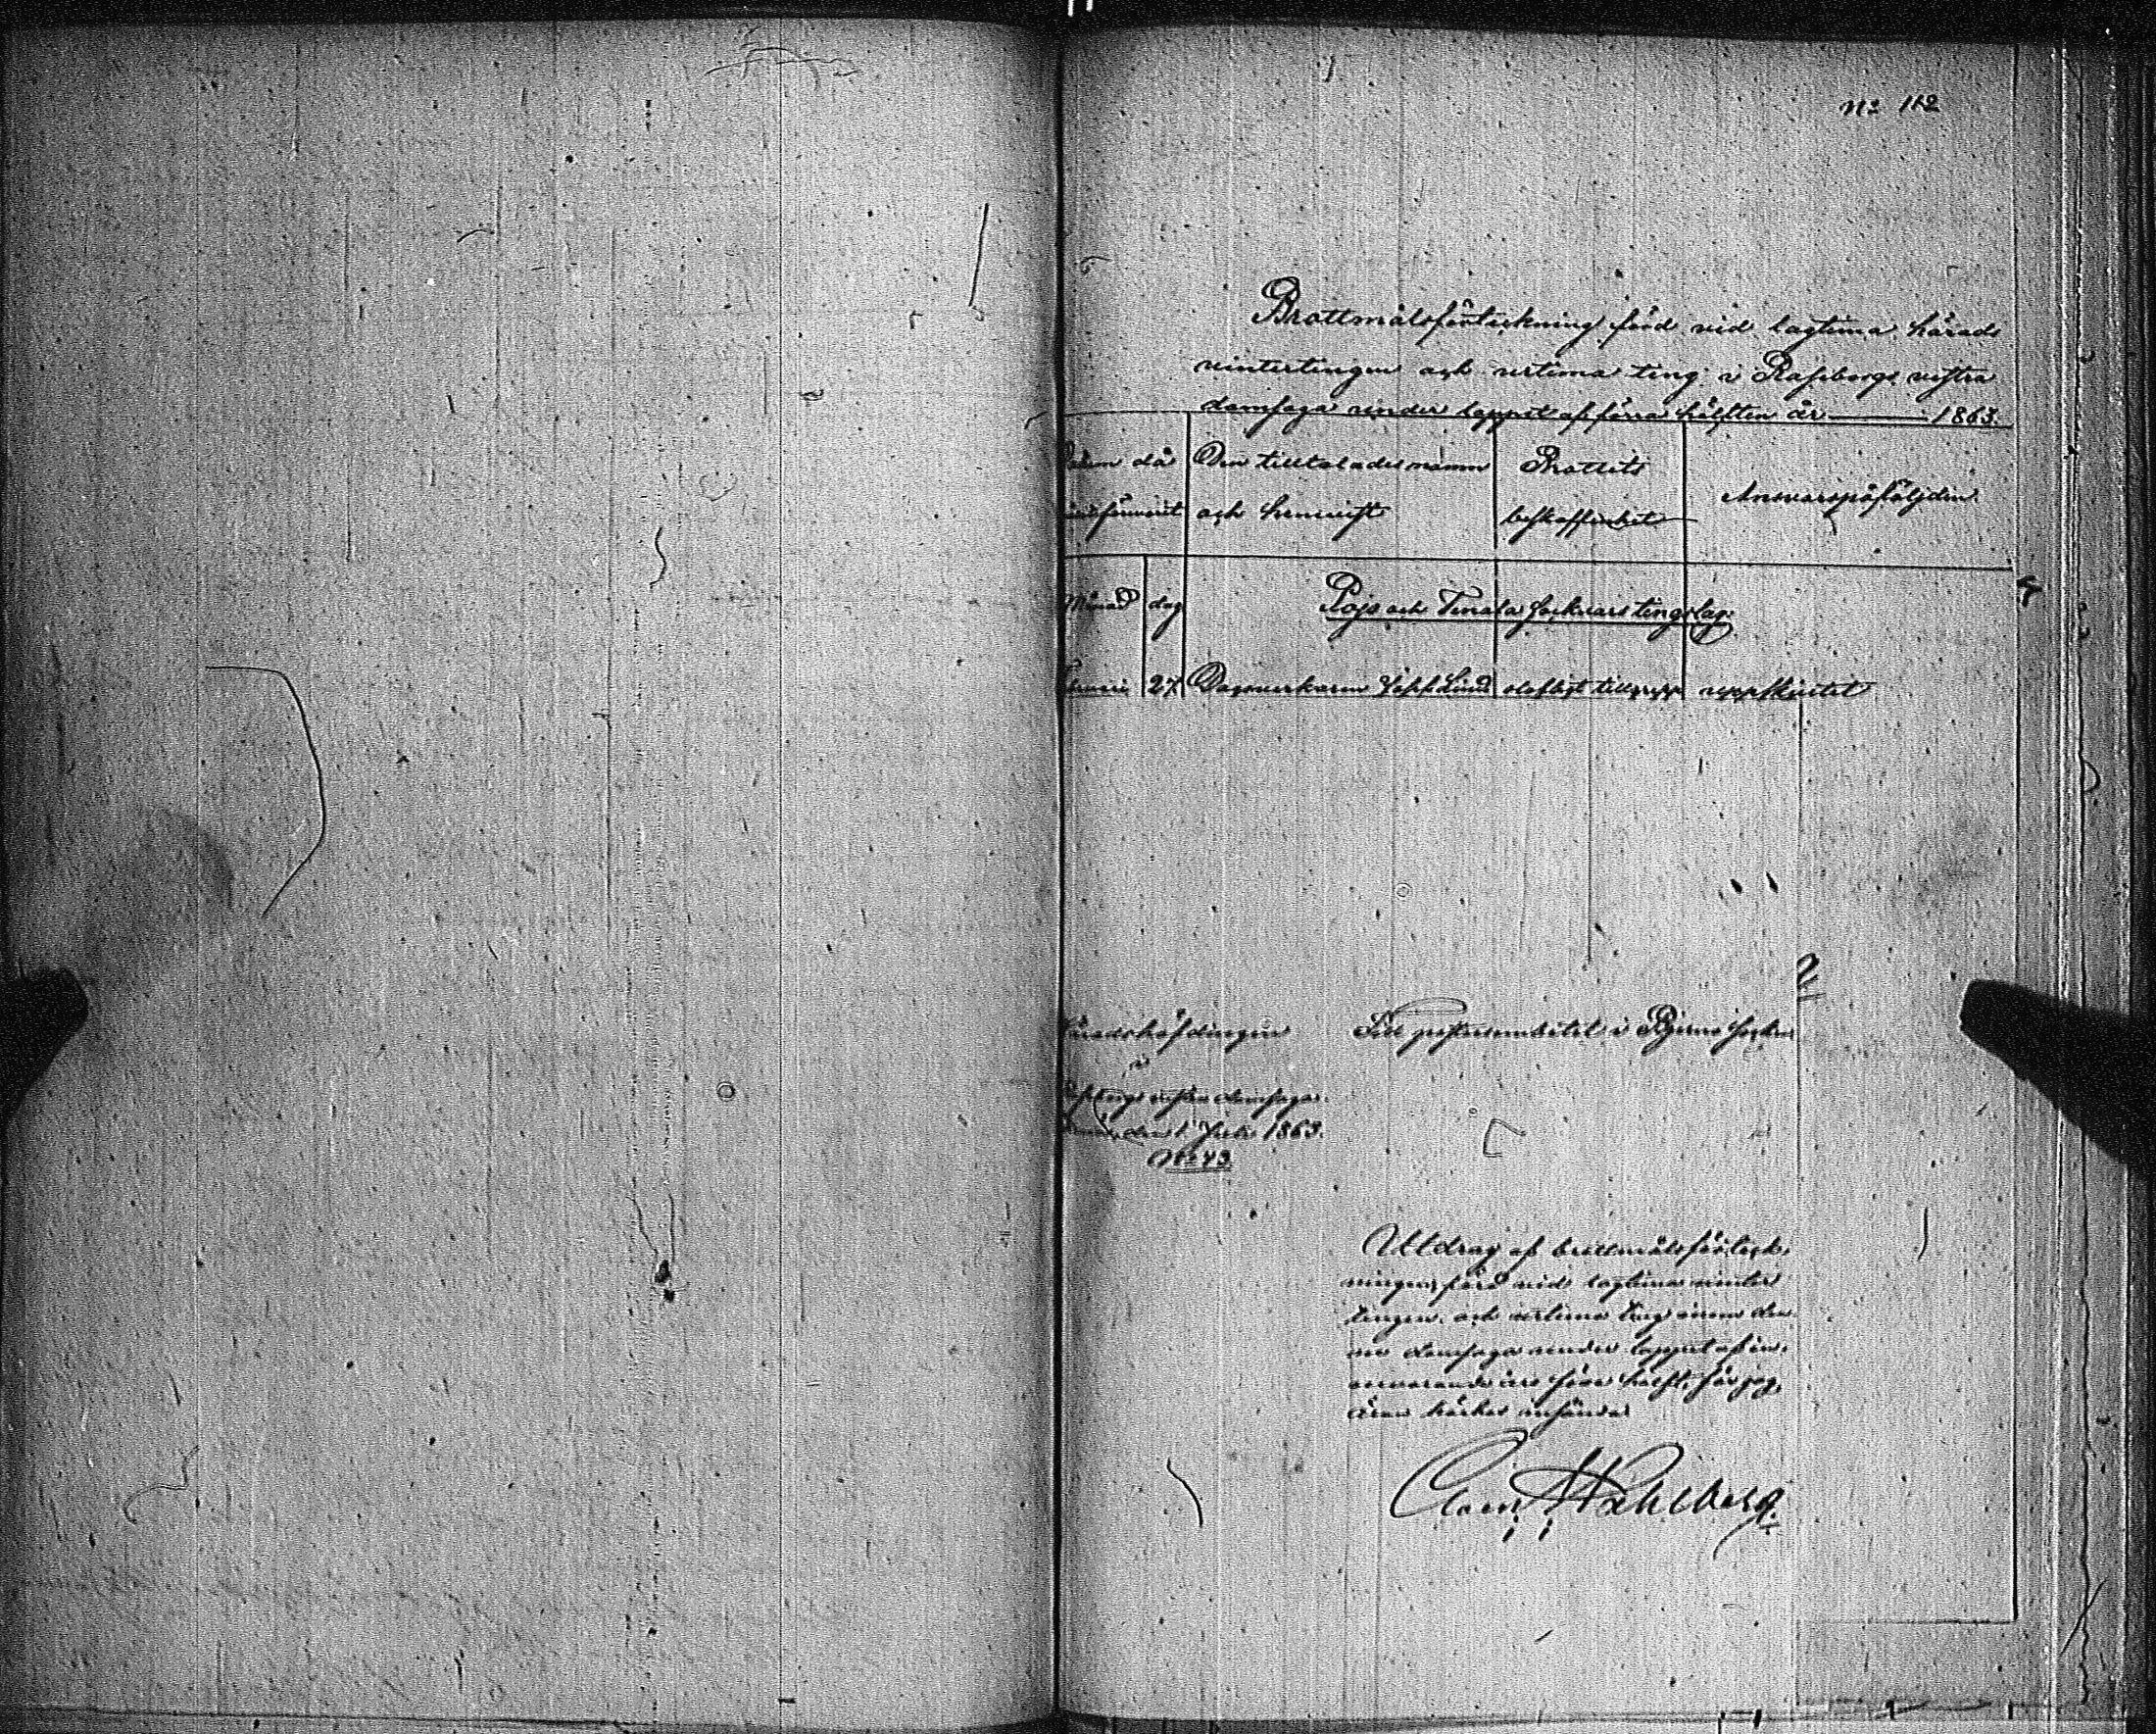 No 112
Brottmålsförteckning, förd vid lagtima härads
vintertingen och urtima ting i Raseborgs vestra
domsaga under loppet af förra hälften år 1863.
då
Den tilltalades namn
och hemvist
Brottets
beskaffenhet
Ansvarspåföljden
Månad dag
Pojo och Tenala socknars tingslag.
Februari 27 Dagsverkaren Lind olofligt tillgrepp uppskjutet
Häradshöfdingen
i
vestra domsaga.
den 1 Juli 1863.
No 43.
Till pastorsembetet i Bjerno socken
Utdrag af brottmålsförteck-
ningen, förd vid lagtima vinter
tingen och urtima ting inom den-
na domsaga under loppet af in-
nevarande års förra hälft, får jag
äran härhos insända
Wahlberg.